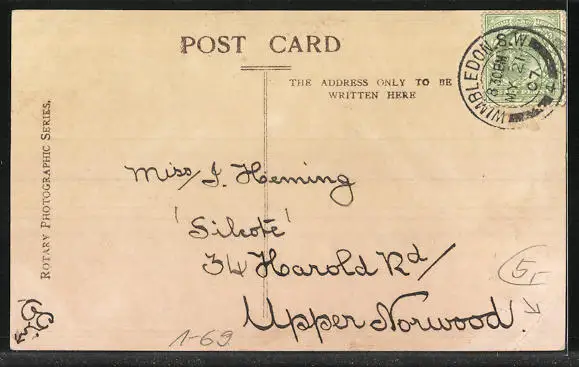 POST CARD
THE ADDRESS ONLY TO BE
WRITTEN HERE
WIMBLEDON.S.W
8.30PM
21
07
4
ROTARY PHOTOGRAPHIC SERIES.
Miss J. Heming
'Silcote'
34 Harold Rd/
Upper Norwood.
5,-
1-69